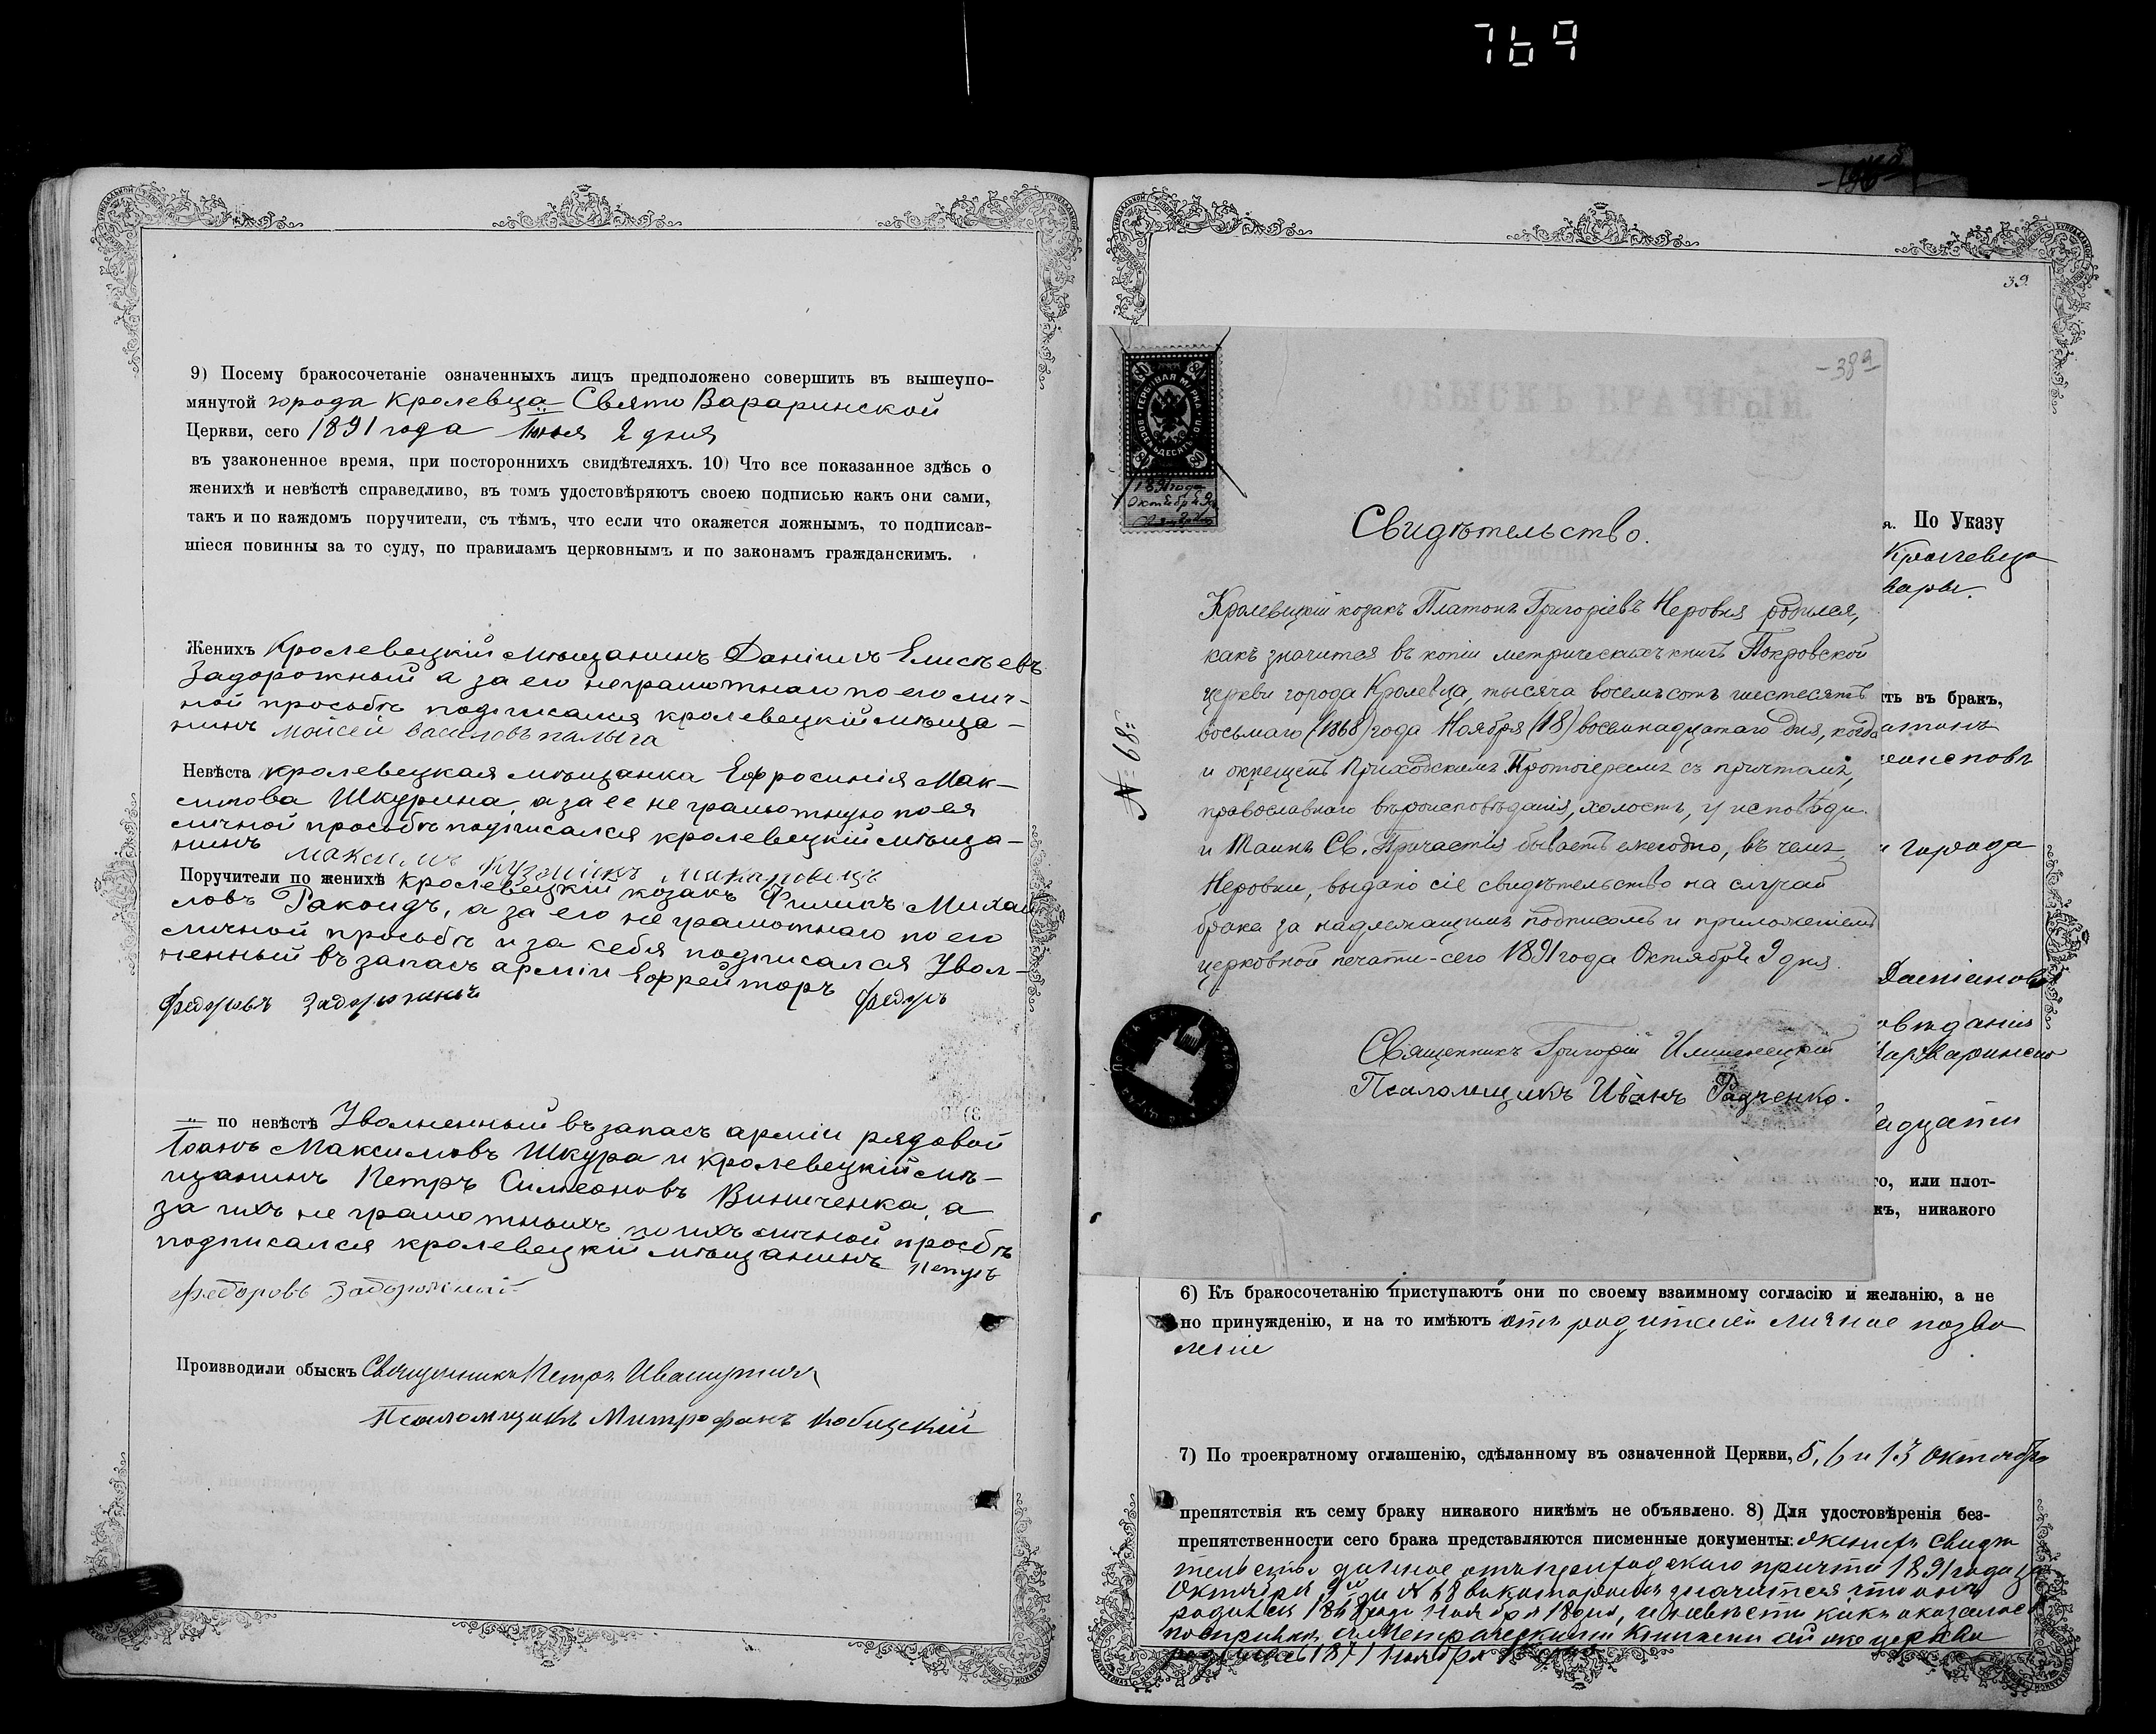 769
9) Посему бракосочетаніе означенныхъ лицъ предположено совершить въ вышеупо-
мянутой города Кролевца Свято Вараринской
Церкви, сего 1891 года Іюня 2 дня
въ узаконенное время, при постороннихъ свидѣтеляхъ. 10) Что все показанное здѣсь о
женихѣ и невѣстѣ справедливо, въ томъ удостовѣряютъ своею подписью какъ они сами,
такъ и по каждомъ поручители, съ тѣмъ, что если что окажется ложнымъ, то подписав-
шіеся повинны за то суду, по правиламъ церковнымъ и по законамъ гражданскимъ.
Женихъ Кролевецкій мѣщанинъ Даніилъ Елисѣевъ
Задорожный а за его неграмотнаго по его лич-
ной просьбѣ подписался кролевецкій мѣща-
нинъ Мойсей василовъ палыга
Невѣста кролевецкая мѣщанка Ефросинія Мак-
симова Шкурина, а за ее не грамотную по ея
личной просьбѣ подписался кролевецкій мѣща-
нинъ Максимъ
Поручители по женихѣ кролевецкій козакъ Филипъ Михаи
ловъ Ракоидъ, а за его не грамотнаго по его
личной просьбѣ и за себя подписался Увол-
ненный въ запасъ арміи Ефрейторъ Федоръ
Федоровъ Задорожный
по невѣстѣ Уволненный въ запасъ арміи рядовой
Іоанъ Максимовъ Шкура и кролевецкій мѣ-
щанинъ Петръ Симеоновъ Виниченка, а
за ихъ не грамотныхъ по ихъ личной просбѣ
подписался кролевецкій мѣщанинъ Петръ
Федоровъ Задорожный
Производили обыскъ Священникъ Петръ
Псаломщикъ Митрофанъ
39
389
ГЕРБОВАЯ МАРКА
ВОСЕМЬДЕСЯТЪ КОП.
80
1891 года
Октября 9 д
Свидѣтельство.
Кролевецкій козакъ Платонъ Григоріевъ Неровня родился,
какъ значится въ копіи метрическихъ книгъ Покровской
церкви города Кролевца, тысяча восемьсотъ шестесятъ
восьмаго (1868) года Ноября (18) восемнадцатаго дня, когда
и окрещенъ Приходскимъ Протоіереемъ съ причтомъ,
православнаго вѣроисповѣданія, холостъ, у исповѣди
и Таинъ Св. Причастія бываетъ ежегодно, въ чемъ
Неровни, выдано сіе свидѣтельство на случай
брака за надлежащимъ подписомъ и приложеніемъ
церковной печати - сего 1891 года Октября 9 дня.
№ 68
Священникъ Григорій
Псаломщикъ Иванъ Радченко.
я. По Указу
Кролевца
вары.
ть въ бракъ,
города
Даміанов
овѣданія
адцати
го, или плот-
къ, никакого
6) Къ бракосочетанію приступаютъ они по своему взаимному согласію и желанію, а не
по принужденію, и на то имѣютъ отъ родителей личное позво
леніе
7) По троекратному оглашенію, сдѣланному въ означенной Церкви, 5, 6 и 13 Октября
препятствія къ сему браку никакого никѣмъ не объявлено. 8) Для удостовѣренія без-
препятственности сего брака представляются писменные документы: Женихъ Свидѣ
тельство данное отъ приходскаго причта 1891 года
Октября 9 за № 68 въ которомъ значится что онъ
родился 1868 года Ноября 18 дня, и невѣсти какъ оказалось
по справкѣ съ Метрическими книгами сей же церкви
родилась 1871 Ноября